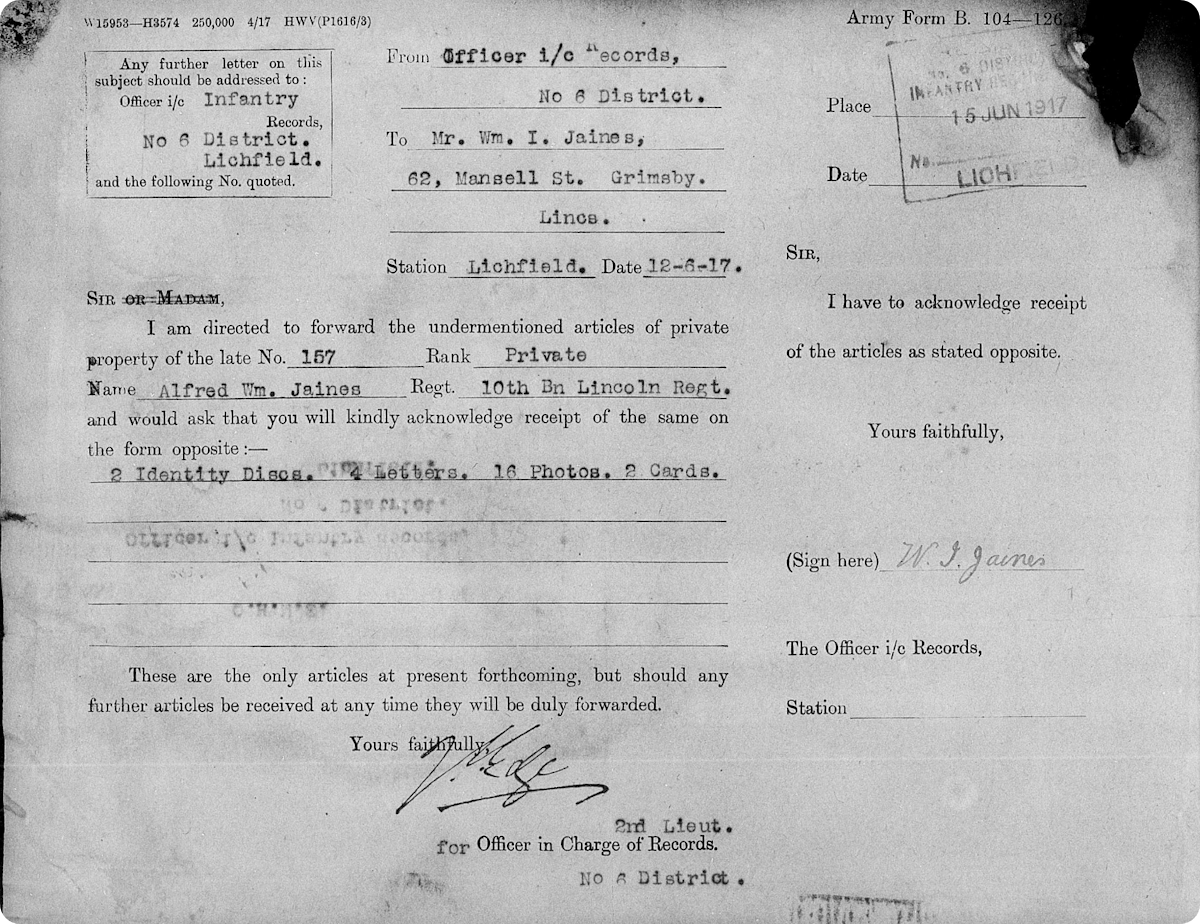 W 15953—H3574 250,000 4/17 HWV(P1616/3)
Army Form B. 104—126
Any further letter on this
subject should be addressed to:
Officer i/c Infantry
Records,
No 6 District.
Lichfield.
and the following No. quoted.
From Officer i/c Records,
No 6 District.
To Mr. Wm. I. Jaines,
62, Mansell St. Grimsby.
Lincs.
Station Lichfield. Date 12-6-17.
SIR OR MADAM,
I am directed to forward the undermentioned articles of private
property of the late No. 157 Rank Private
Name Alfred Wm. Jaines Regt. 10th Bn Lincoln Regt.
and would ask that you will kindly acknowledge receipt of the same on
the form opposite:—
2 Identity Discs. 4 Letters. 16 Photos. 2 Cards.
These are the only articles at present forthcoming, but should any
further articles be received at any time they will be duly forwarded.
Yours faithfully,
2nd Lieut.
for Officer in Charge of Records.
No 6 District.
Place
Date
No. 6 DISTRICT
INFANTRY
15 JUN 1917
No.
LICHFIELD
SIR,
I have to acknowledge receipt
of the articles as stated opposite.
Yours faithfully,
(Sign here) W. I. Jaines
The Officer i/c Records,
Station